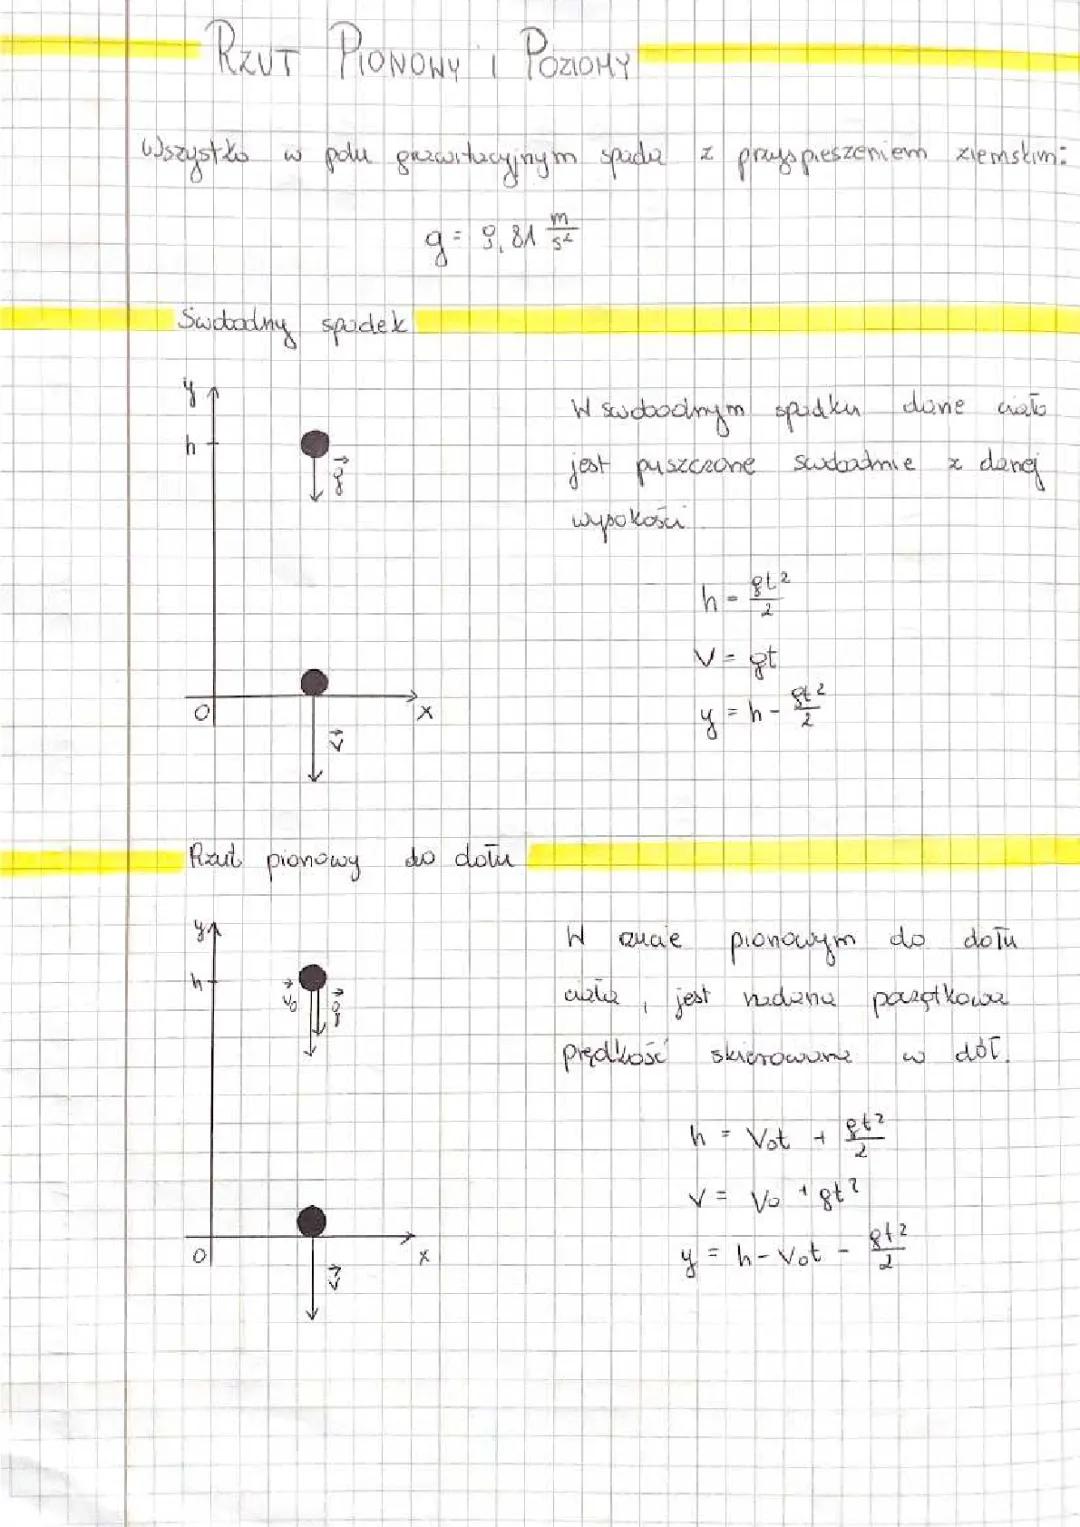 RZUT PIONOWY i POZIOMY
Wszystko w polu grawitacyjnym spada z przyspieszeniem ziemskim:
g = 9,81 m/s²
Swobodny spadek
y
h
g
0
x
v
W swobodnym spadku dane ciało
jest puszczone swobodnie z danej
wysokości
h = gt²/2
V = gt
y = h - gt²/2
Rzut pionowy do dołu
y
h
v₀
g
0
x
v
W rzucie pionowym do dołu
ciała, jest nadana początkowa
prędkość skierowana w dół.
h = V₀t + gt²/2
V = V₀ + gt²
y = h - V₀t - gt²/2